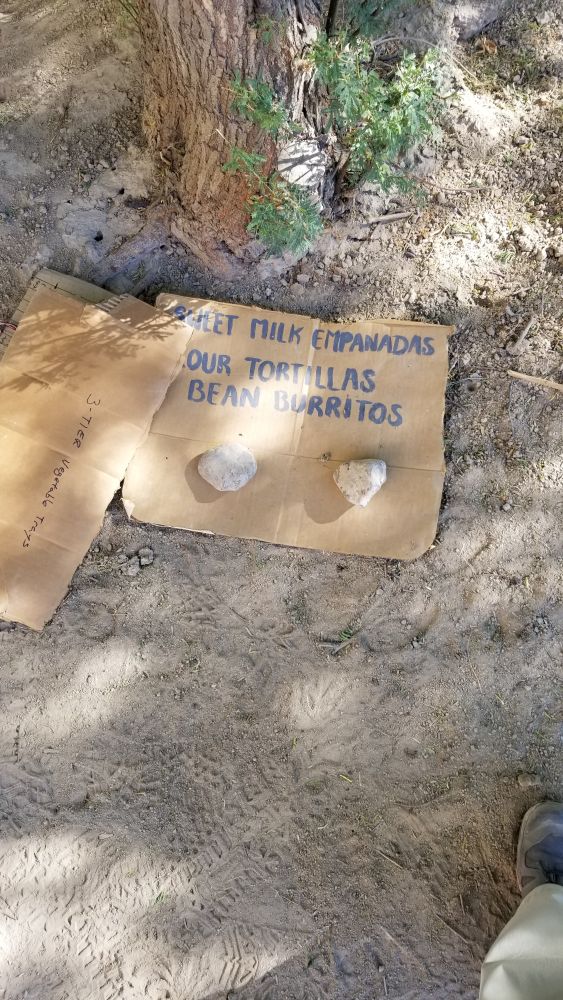 SWEET MILK EMPANADAS
LOUR TORTILLAS
BEAN BURRITOS
3-TIER Vegetable Trays